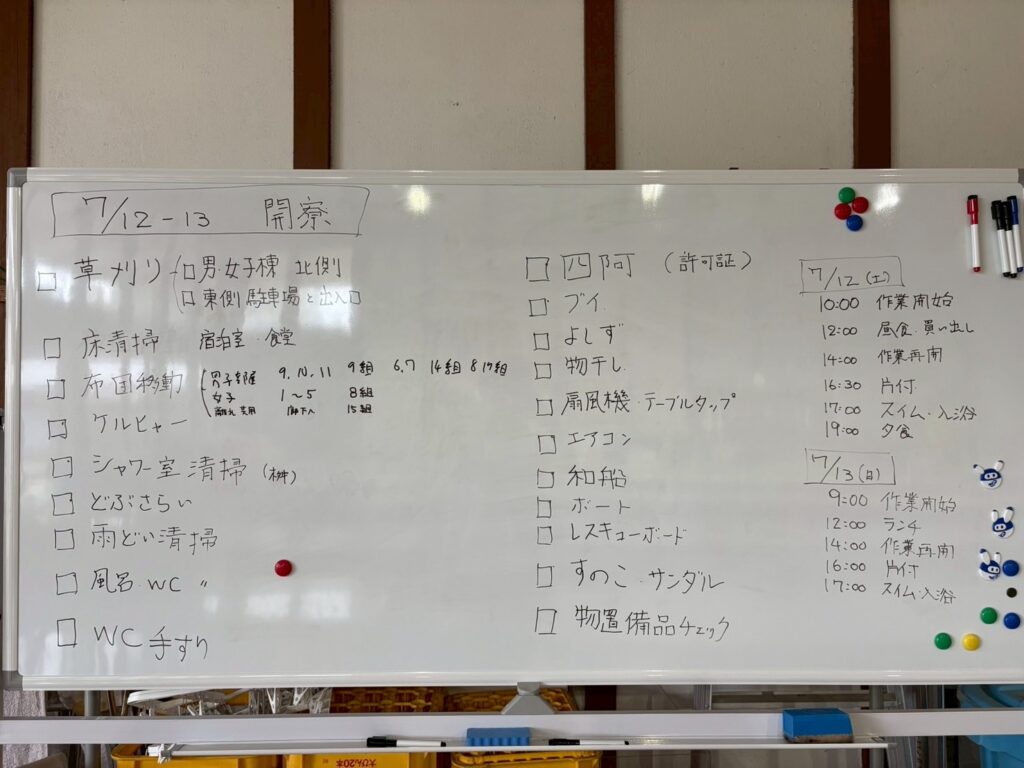 7/12-13 開寮
□ 草刈り □ 男・女子棟 北側
□ 東側 駐車場と出入口
□ 床清掃 宿泊室・食堂
□ 布団移動 男子部屋 9.10.11 9組 6,7 14組 8 17組
女子 1~5 8組
15組
□ ケルヒャー
□ シャワー室清掃 (桝)
□ どぶさらい
□ 雨どい清掃
□ 風呂・WC 〃
□ WC 手すり
□ 四阿 (許可証)
□ ブイ
□ よしず
□ 物干し
□ 扇風機・テーブルタップ
□ エアコン
□ 和船
□ ボート
□ レスキューボード
□ すのこ・サンダル
□ 物置備品チェック
7/12 (土)
10:00 作業開始
12:00 昼食・買い出し
14:00 作業再開
16:30 片付
17:00 スイム・入浴
19:00 夕食
7/13 (日)
9:00 作業開始
12:00 ランチ
14:00 作業再開
16:00 片付
17:00 スイム・入浴
大びん20本